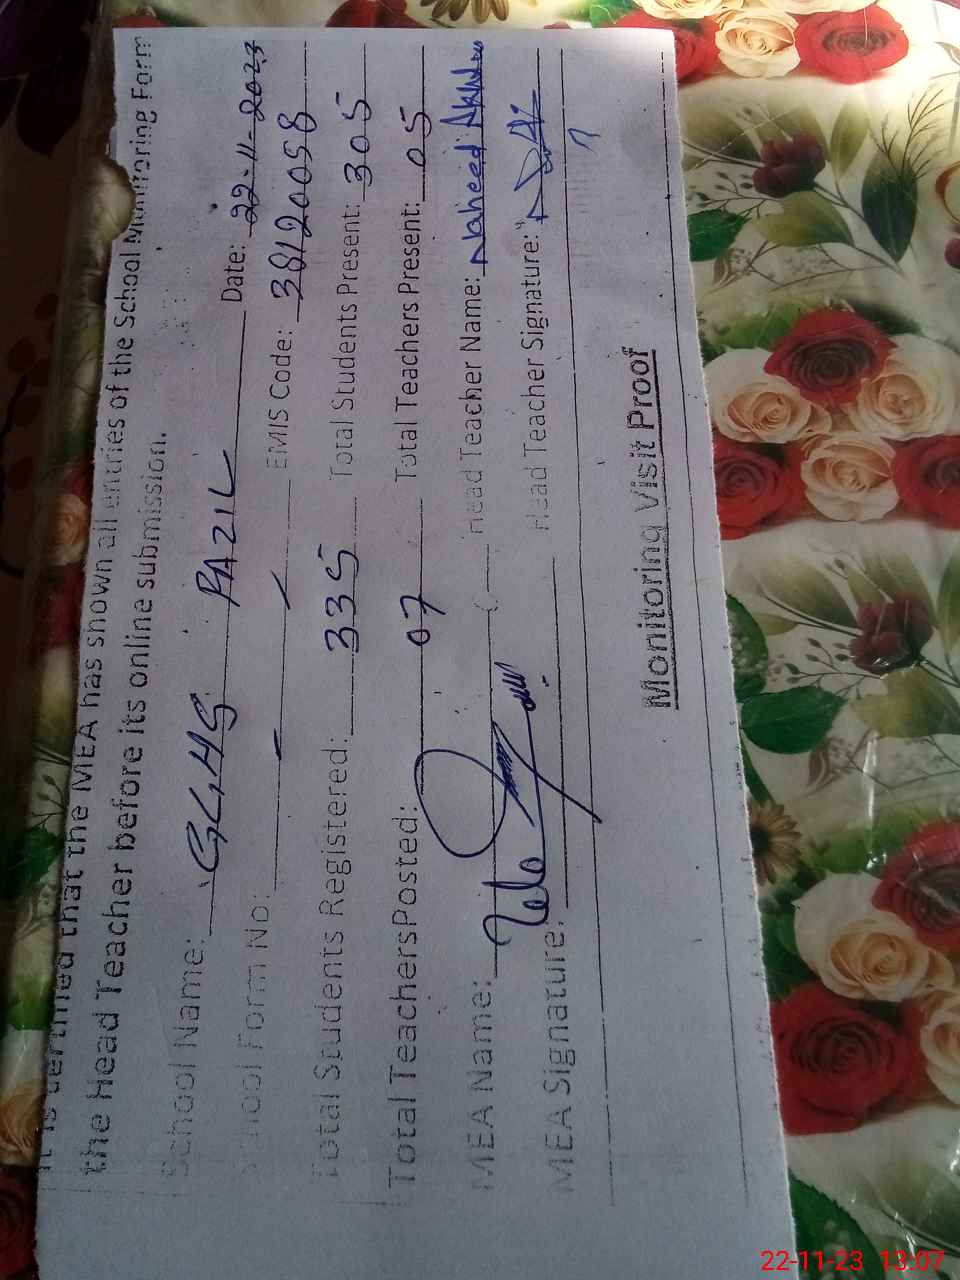 It is certified that the MEA has shown all entries of the School Monitoring Form
the Head Teacher before its online submission.
School Name: GGHS FAZIL Date: 22-11-2023
School Form No: EMIS Code: 38120058
Total Students Registered: 335 Total Students Present: 305
Total Teachers Posted: 07 Total Teachers Present: 05
MEA Name: Head Teacher Name: Naheed Akhtar
MEA Signature: Head Teacher Signature:
Monitoring Visit Proof
22-11-23 13:07